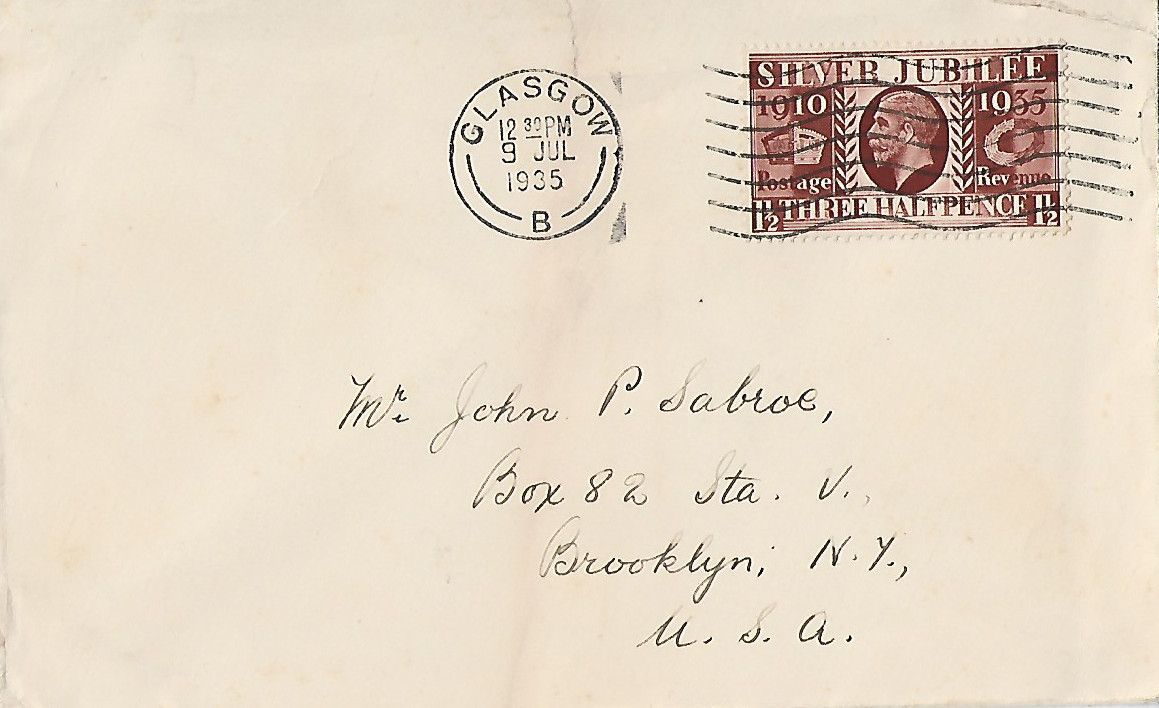 GLASGOW
12 30 PM
9 JUL
1935
B
SILVER JUBILEE
1910 1935
Postage Revenue
1½ THREE HALFPENCE 1½
Mr. John P. Sabroe,
Box 82 Sta. V.,
Brooklyn, N.Y.,
U. S. A.